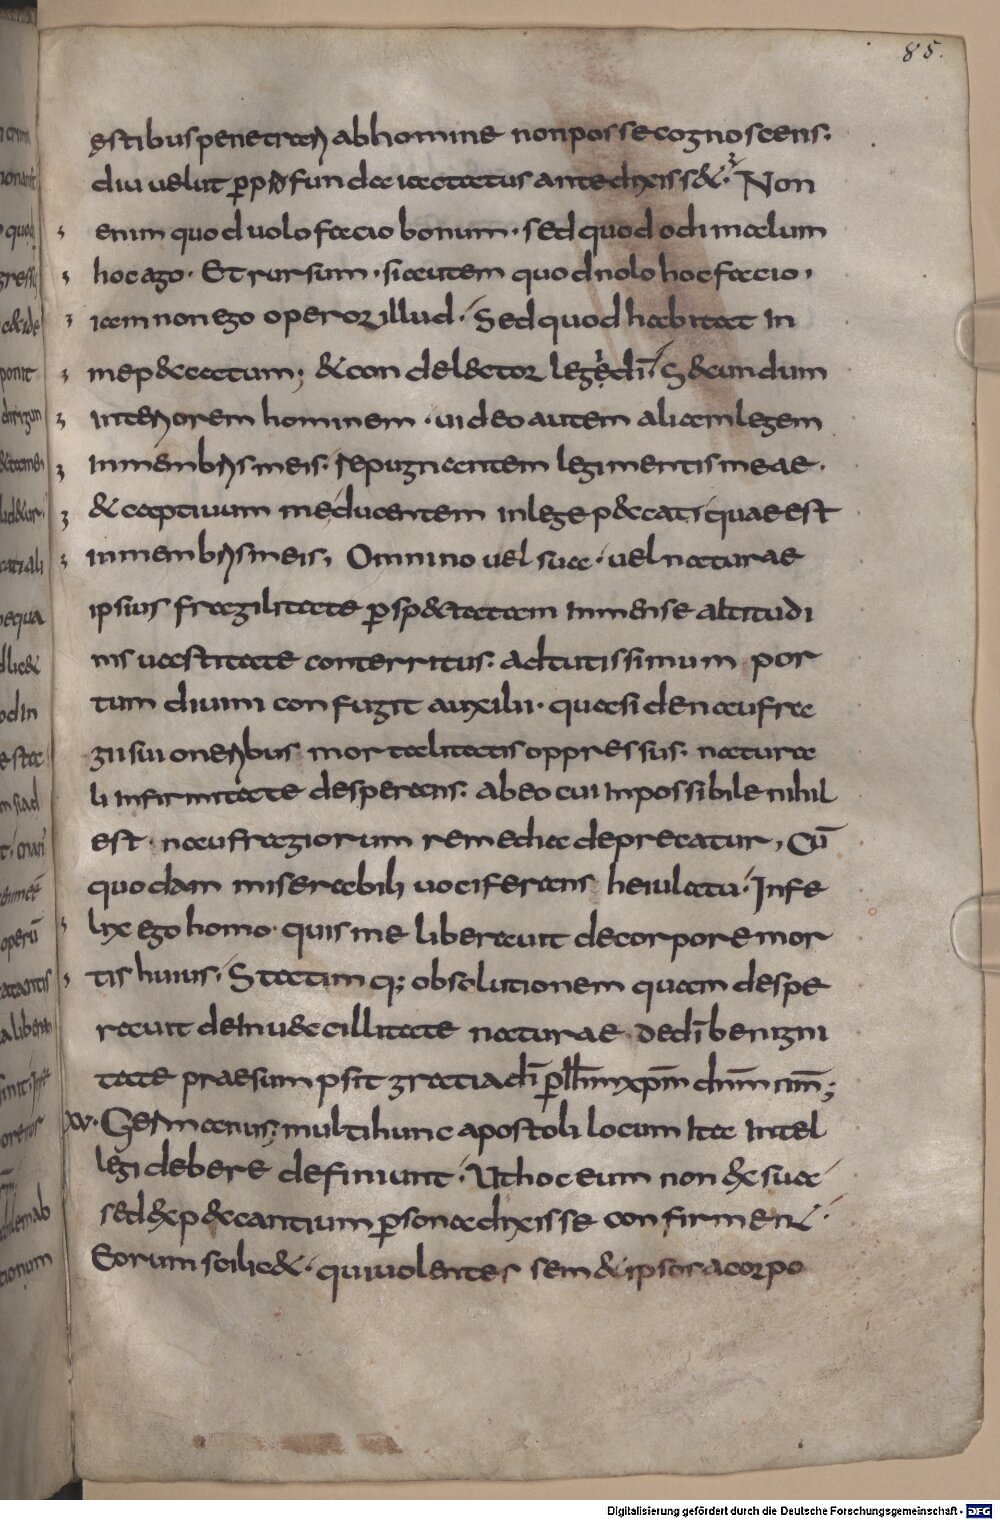 85.
estibus penetrari ab homine non posse cognoscens.
diu velut p̱p̄ro funda iactatus ante dixiss&. Non
enim quod volo facio bonum. sed quod odi malum
hoc ago. Et rursum. si autem quod nolo hoc facio.
iam non ego operor illud. Sed quod habitat in
me p&catum; & condelector legė dī. S&cundum
interiorem hominem. video autem aliam legem
in membris meis. repugnantem legi mentis meae.
& captivum me ducentem in lege p&cati quae est
in membris meis; Omnino vel suae. vel naturae
ipsius fragilitate ꝑsp&ctatam inmense altitudi
nis vastitate conterritus. ad tutissimum por
tum divini confugit auxilii. quasi de naufra
gii sui oneribus mortalitatis oppressus. natura
li infirmitate desperans. ab eo cui inpossibile nihil
est. naufragiorum remedia deprecatur, Cū
quodam miserabili vociferans heiulatu. Infe
lix ego homo. quis me liberavit de corpore mor
tis huius. Statimq; obsolutionem quam despe
ravit de inv&cillitate naturae de dī benigni
tate praesumpsit gratia dī ꝑ ihm xp̄m dnm nm̄;
XV. Germanus; multi hunc apostoli locum ita intel
legi debere definiunt. Ut hoc eum non ex sua
sed ex p&cantium ꝑsona dixisse confirmen&.
Eorum scilic&. qui volentes sem&ipsor a corpo
Digitalisierung gefördert durch die Deutsche Forschungsgemeinschaft - DFG